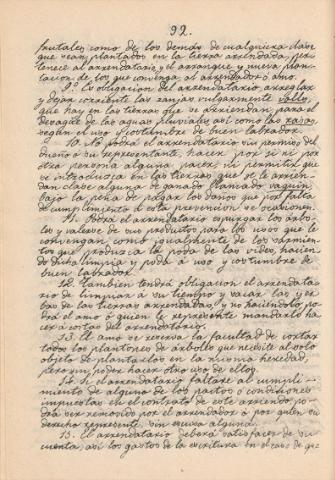 92.
frutales como de los demás de cualquiera clase
que sean plantados en la tierra arrendada, per-
tenece al arrendatario y el arranque y nueva plan-
tacion de los que convenga al arrendador ó amo.
9.º Es obligacion del arrendatario arreglar
y dejar corriente las zanjas vulgarmente valles
que hay en las tierras que se arriendan para el
desagüe de las aguas pluviales así como las rasas,
según el uso y costumbre de buen labrador.
10. No podrá el arrendatario sin permiso del
dueño ó su representante, hacer por sí ni por
otra persona alguna pacer, ni permitir que
se introduzca en las tierras que se le arrien-
dan clase alguna de ganado llamado vaquin,
bajo la pena de pagar los daños que por falta
de cumplimiento á esta prevencion se ocasionen.
11. Podrá el arrendatario espurgar los árbo-
les y valerse de sus productos para los usos que le
convengan como igualmente de los sarmien-
tos que produzca la poda de las vides, hacien-
do dicha limpia y poda á uso y costumbre de
buen labrador.
12. Tambien tendrá obligacion el arrendata-
rio de limpiar á su tiempo y vaciar las yer-
bas de las tierras arrendadas y no haciéndolo po-
drá el amo ó quien le represente mandarlo ha-
cer á costas del arrendatario.
13. El amo se reserva la facultad de cortar
todos los plantones de árboles que necesite al solo
objeto de plantarlos en la misma heredad,
pero sin poder hacer otro uso de ellos.
14. Si el arrendatario faltare al cumpli-
miento de alguno de los pactos ó condiciones
impuestas en el contrato de este arriendo, po-
drá ser removido por el arrendador ó por quien su
derecho represente sin escusa alguna.
15. El arrendatario deberá satisfacer de su
cuenta, así los gastos de la escritura en el caso de que